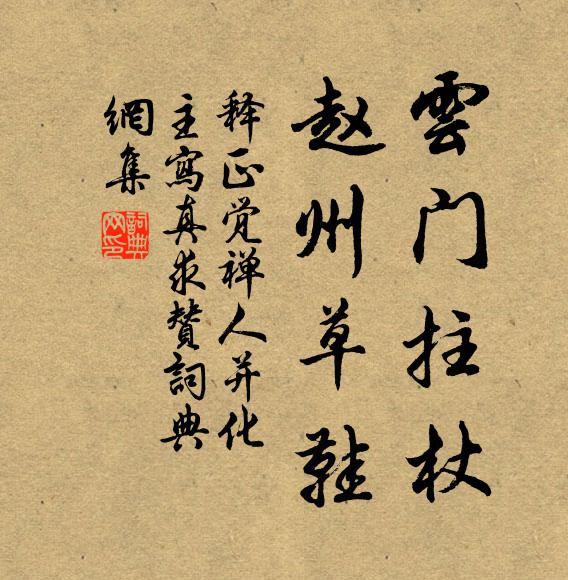 雲门拄杖
赵州草鞋
释正觉禅人并化
主寫真求賛詞典
網集
詞典网印